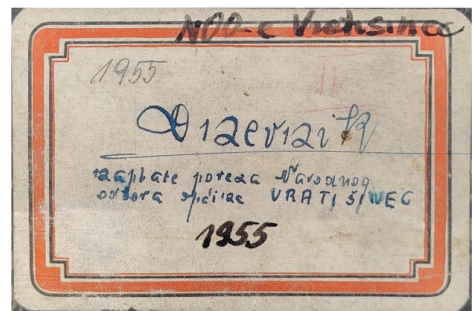 NOO-e Vratišinec
1955
II
Dnevnik
naplate poreza Narodnog
odbora općine VRATIŠINEC
1955